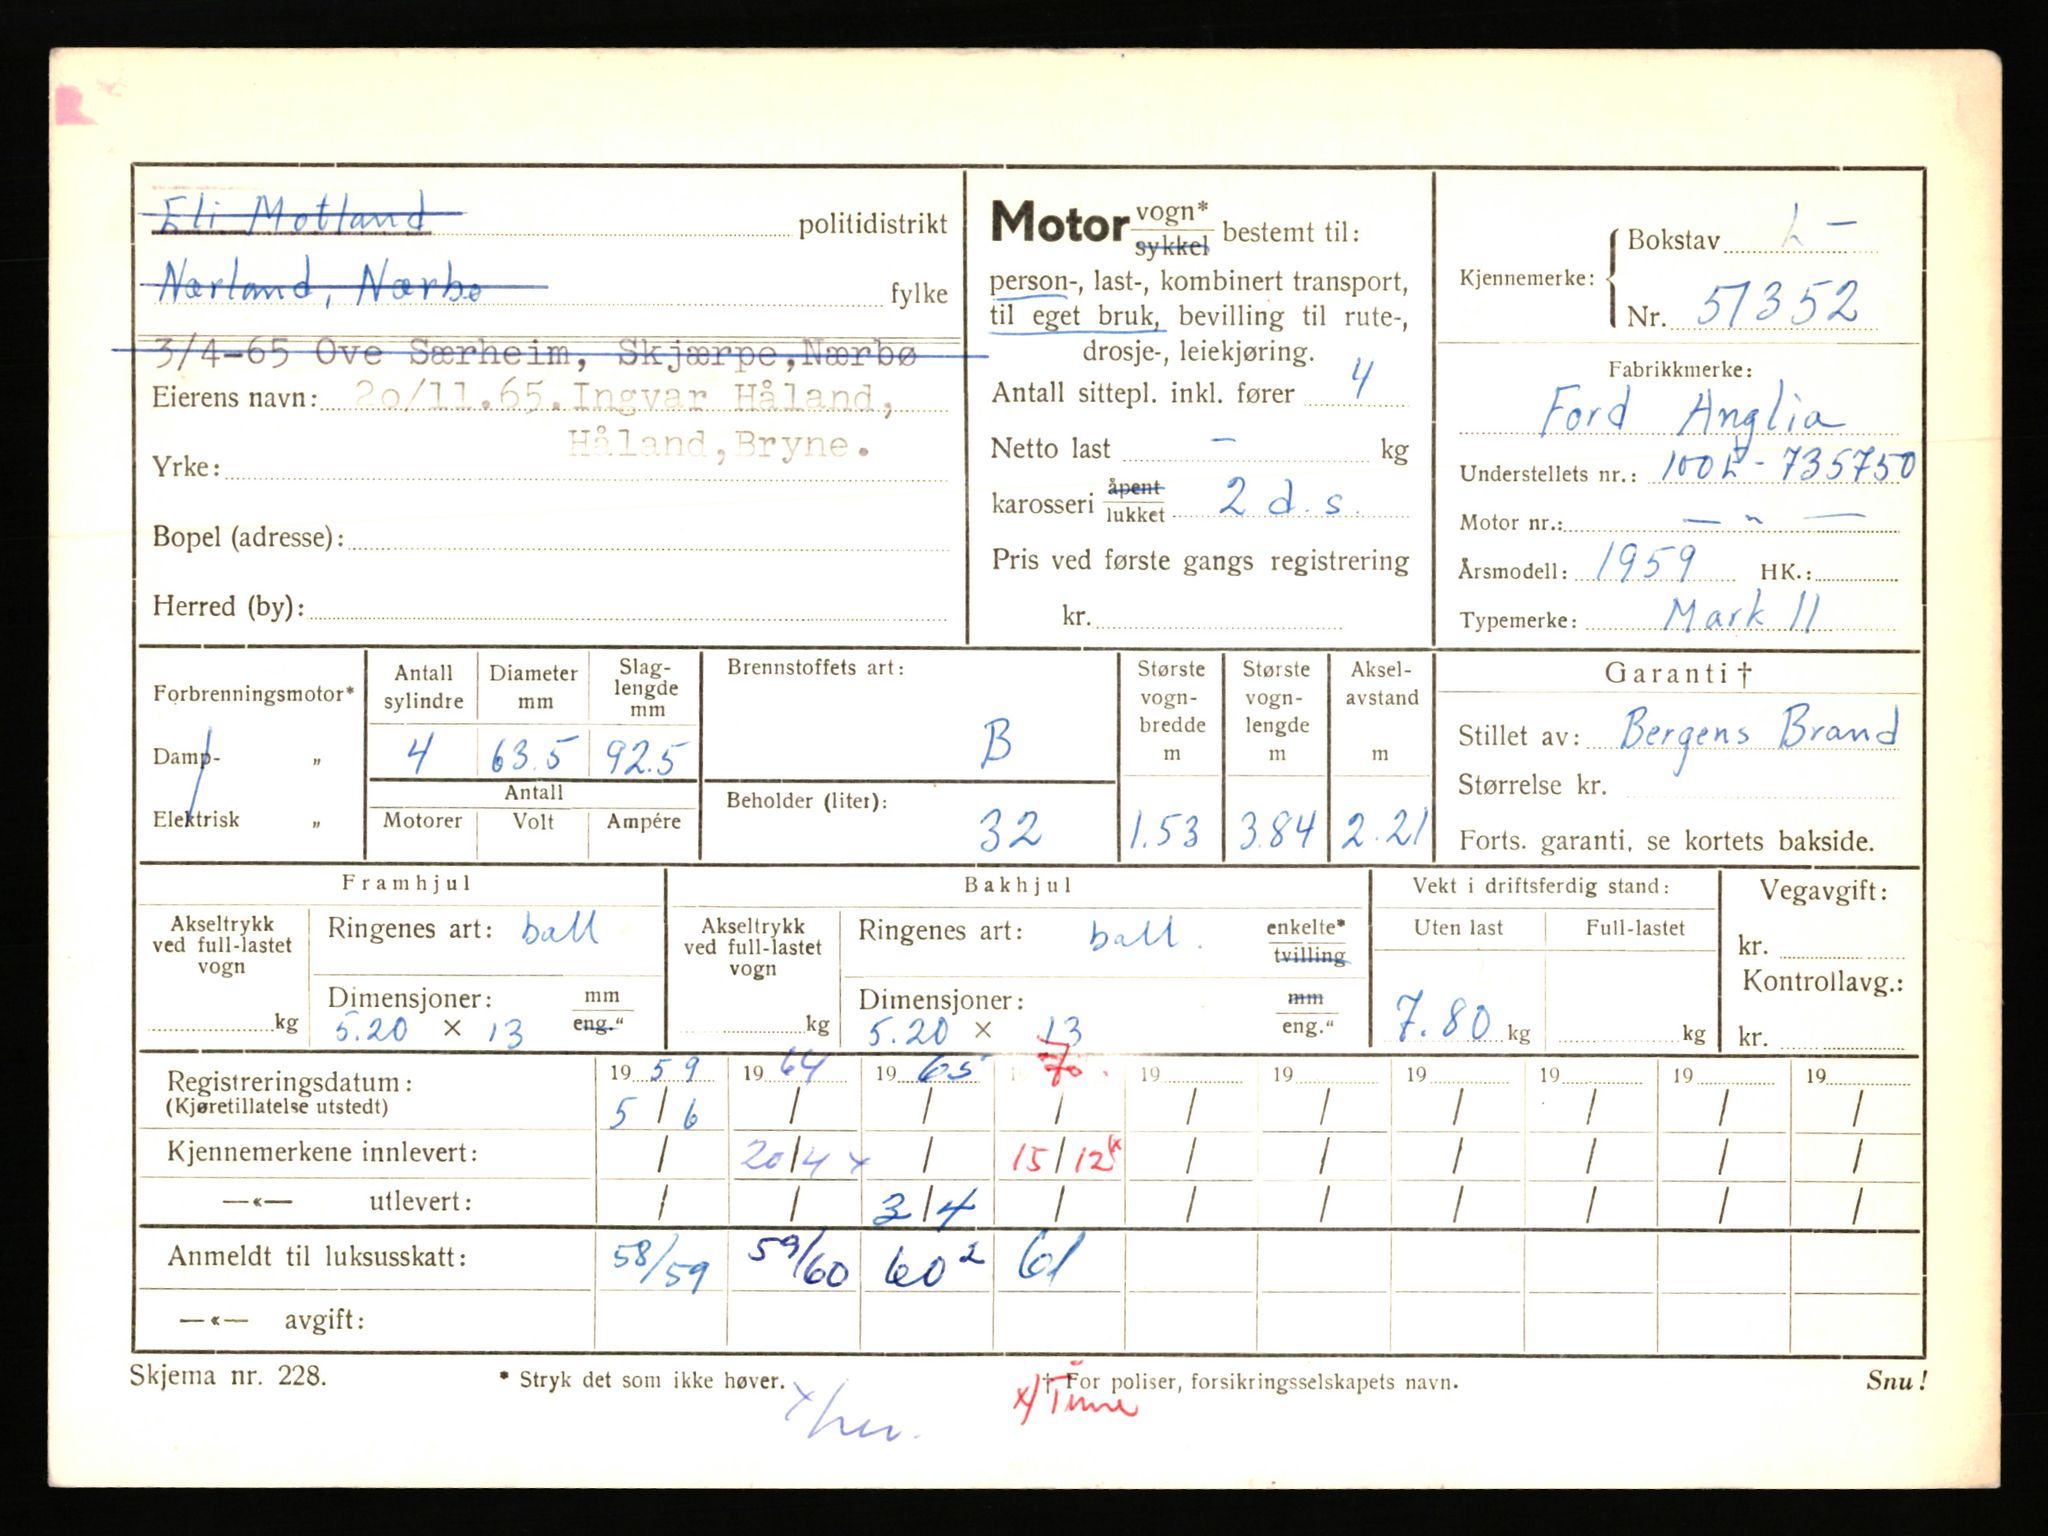 Eli Motland politidistrikt
Nærland, Nærbø fylke
3/4-65 Ove Særheim, Skjærpe,Nærbø
Eierens navn: 20/11.65.Ingvar Håland,
Håland,Bryne.
Yrke:
Bopel (adresse):
Herred (by):
Motor vogn* sykkel bestemt til:
person-, last-, kombinert transport,
til eget bruk, bevilling til rute-,
drosje-, leiekjøring.
Antall sittepl. inkl. fører 4
Netto last - kg
karosseri åpent lukket 2 d.s.
Pris ved første gangs registrering
kr.
Kjennemerke: Bokstav L-
Nr. 51352
Fabrikkmerke:
Ford Anglia
Understellets nr.: 100E-735750
Motor nr.: — " —
Årsmodell: 1959 HK.:
Typemerke: Mark II
Forbrenningsmotor*
Damp- „
Elektrisk „
Antall sylindre Diameter mm Slag-lengde mm
4 63.5 92.5
Antall
Motorer Volt Ampére
Brennstoffets art:
B
Beholder (liter):
32
Største vogn-bredde m
1.53
Største vogn-lengde m
3.84
Aksel-avstand m
2.21
Garanti †
Stillet av: Bergens Brand
Størrelse kr.
Forts. garanti, se kortets bakside.
Framhjul
Akseltrykk ved full-lastet vogn
kg
Ringenes art: ball
Dimensjoner: mm
5.20 × 13 eng."
Bakhjul
Akseltrykk ved full-lastet vogn
kg
Ringenes art: ball. enkelte* tvilling
Dimensjoner: mm
5.20 × 13 eng."
Vekt i driftsferdig stand:
Uten last Full-lastet
7.80 kg kg
Vegavgift:
kr.
Kontrollavg.:
kr.
Registreringsdatum: 19 59 19 64 19 65 70. 19 19 19 19 19 19
(Kjøretillatelse utstedt) 5/6 / / / / / / / / /
Kjennemerkene innlevert: / 20/4 x / 15/12 x / / / / / /
—«— utlevert: / / 3/4 / / / / / / /
Anmeldt til luksusskatt: 58/59 59/60 60² 61
—«— avgift:
Skjema nr. 228. * Stryk det som ikke høver. † For poliser, forsikringsselskapets navn. Snu!
x/ her.
x/ Time